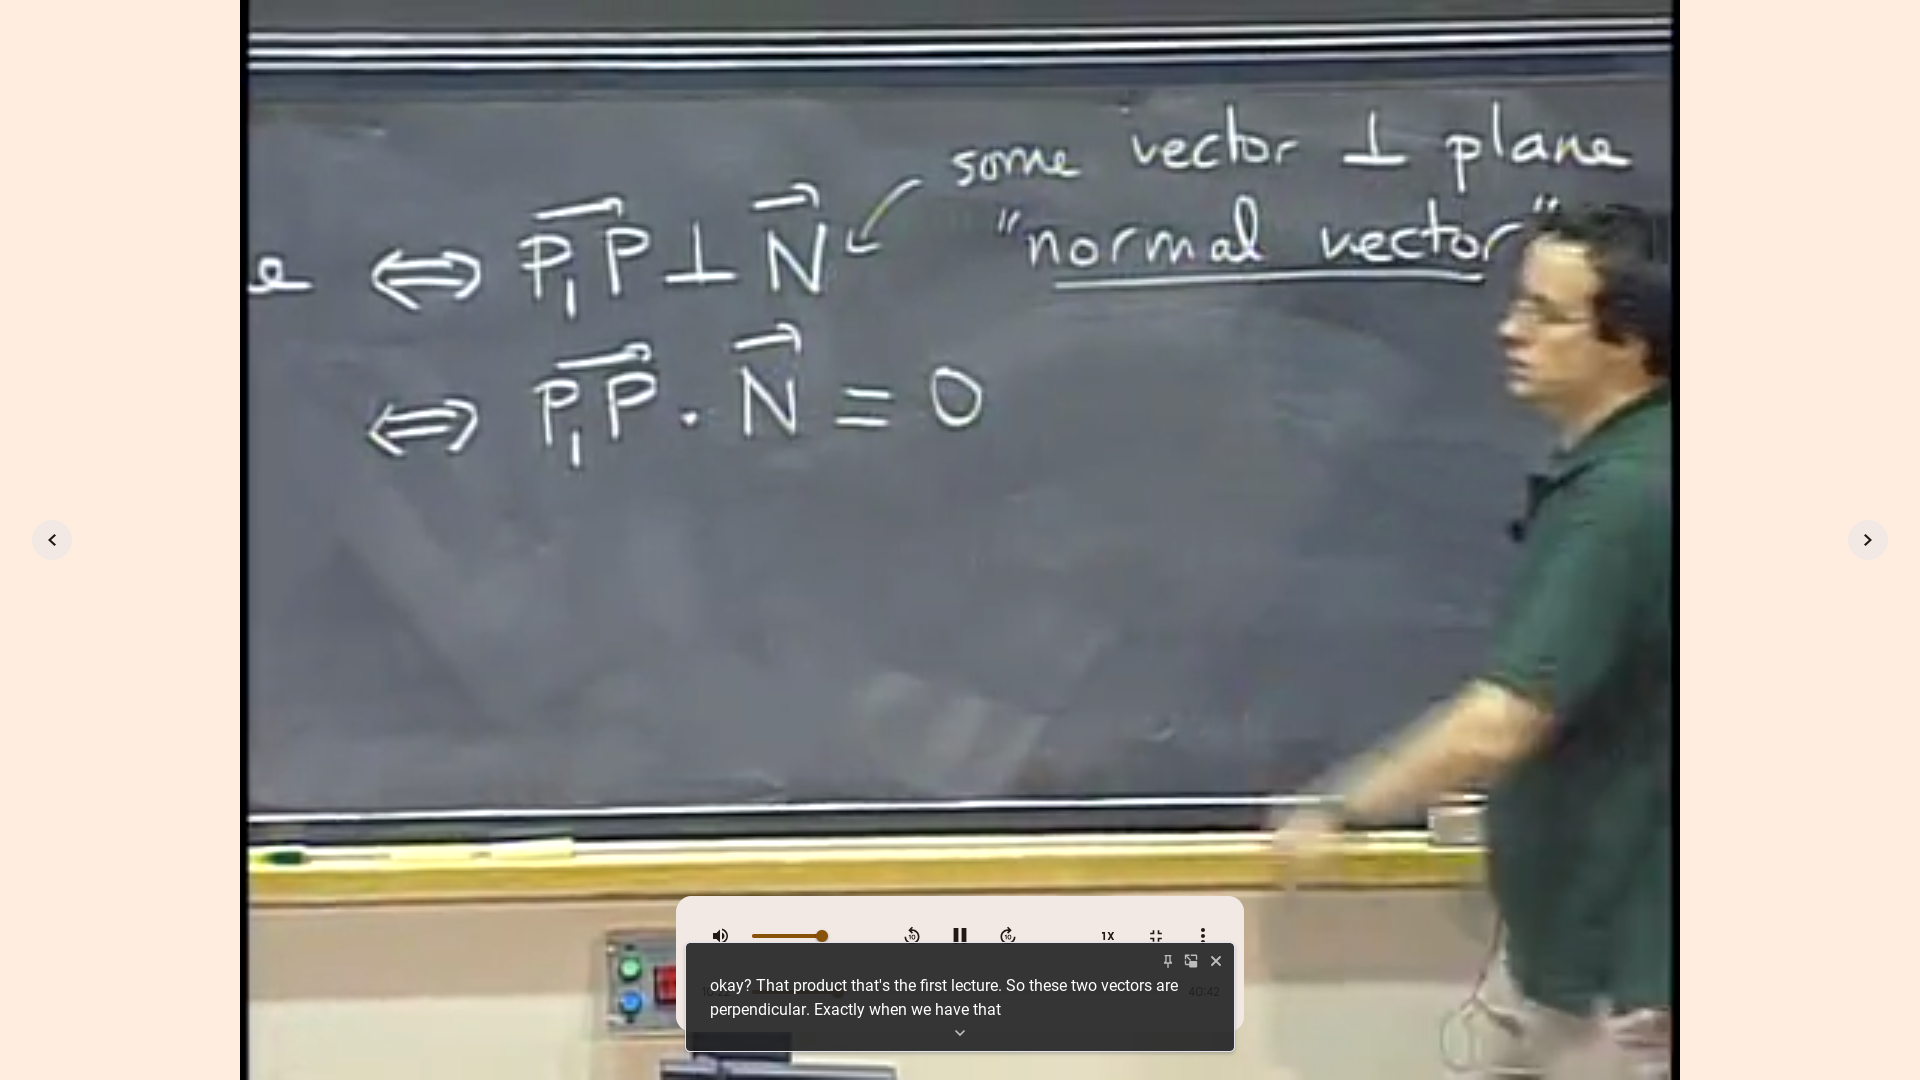 some vector ⊥ plane
"normal vector"
e ⇔ P₁P ⊥ N
⇔ P₁P · N = 0
1X
40:42
okay? That product that's the first lecture. So these two vectors are
perpendicular. Exactly when we have that